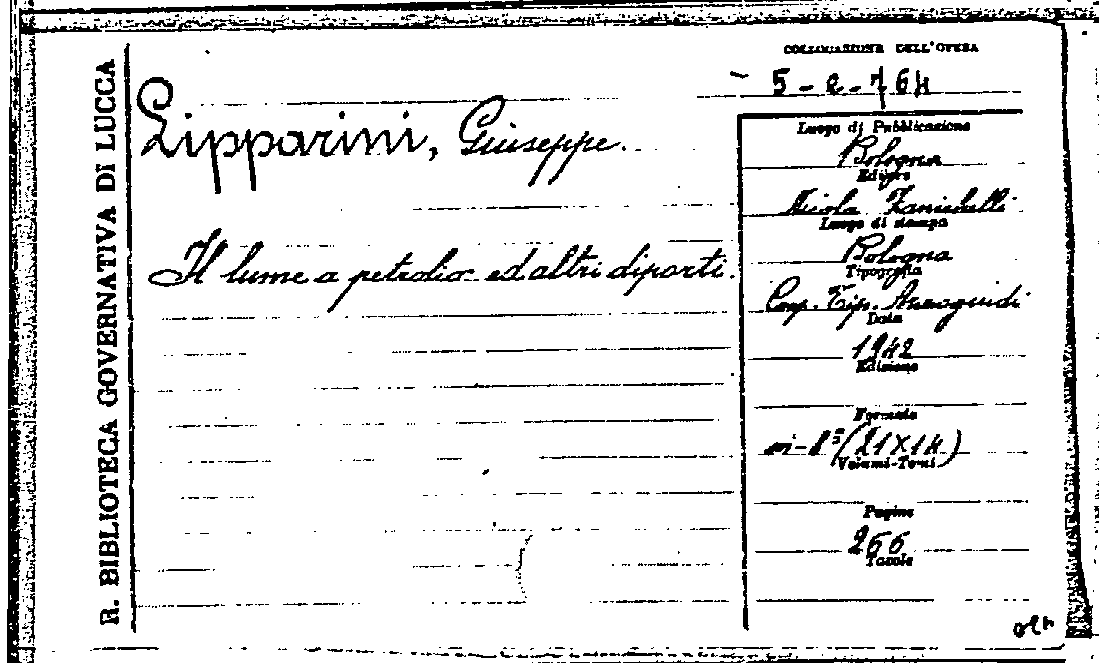 R. BIBLIOTECA GOVERNATIVA DI LUCCA
COLLOCAZIONE DELL'OPERA
5-e-764
Lipparini, Giuseppe.
Il lume a petrolio ed altri diporti.
Luogo di Pubblicazione
Bologna
Editore
Nicola Zanichelli
Luogo di stampa
Bologna
Tipografia
Coop. Tip. Azzoguidi
Data
1942
Edizione
Formato
in-8° (21X14)
Volumi-Tomi
Pagine
266
Tavole